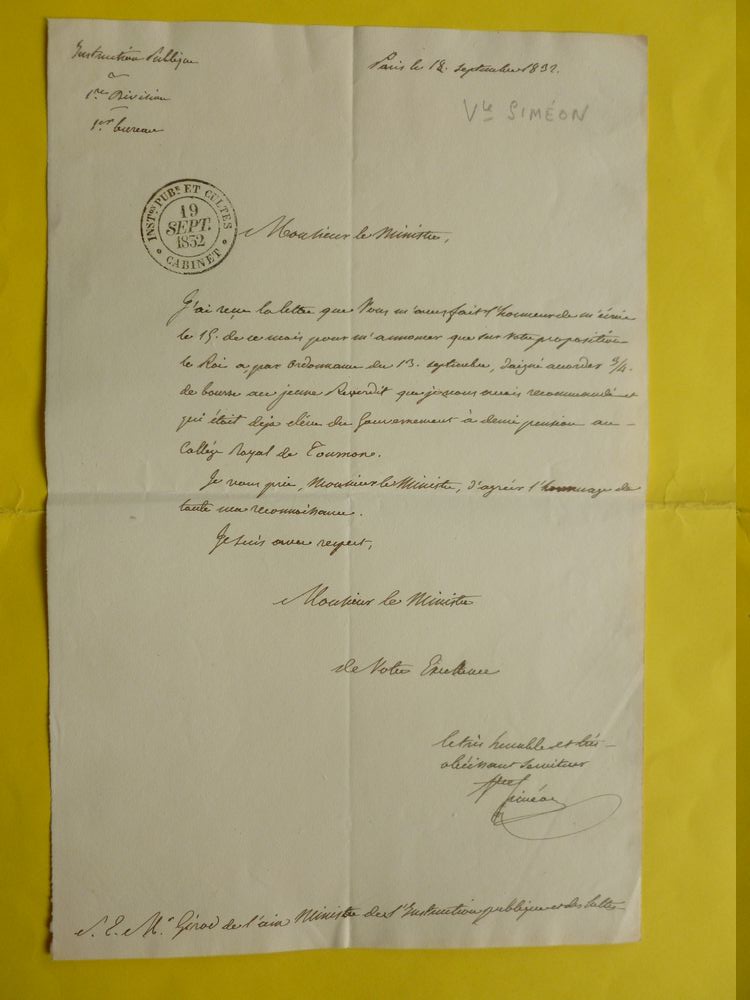 Instruction Publique
1re Division
1er bureau
Paris le 18. septembre 1832.
Vte SIMÉON
INSTon PUBe ET CULTES
19
SEPT.
1832
CABINET
Monsieur le Ministre,
J'ai reçu la lettre que Vous m'avez fait l'honneur de m'écrire
le 15. de ce mois pour m'annoncer que sur votre proposition
le Roi a par ordonnance du 13. septembre, daigné accorder 3/4.
de bourse au jeune Reverdit que je vous avais recommandé et
qui était déja élève du Gouvernement à demi pension au
Collège Royal de Tournon.
Je vous prie, Monsieur le Ministre, d'agréer l'hommage de
toute ma reconnaissance.
Je suis avec respect,
Monsieur le Ministre
de Votre Excellence
le très humble et très
obéissant serviteur
Siméon
S. E. Mr Girod de l'ain Ministre de l'Instruction publique et des Cultes